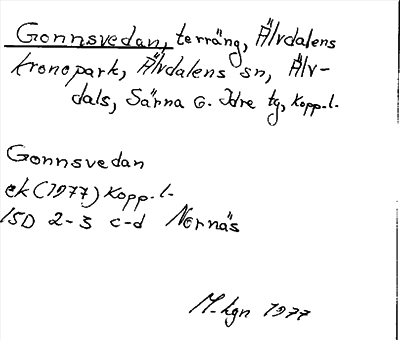 Gonnsvedan, terräng, Älvdalens
kronopark, Älvdalens sn, Älv-
dals, Särna o. Idre tg, Kopp.l.
Gonnsvedan
ek (1977) Kopp.l.
15D 2-3 c-d Nornäs
M.hgn 1977